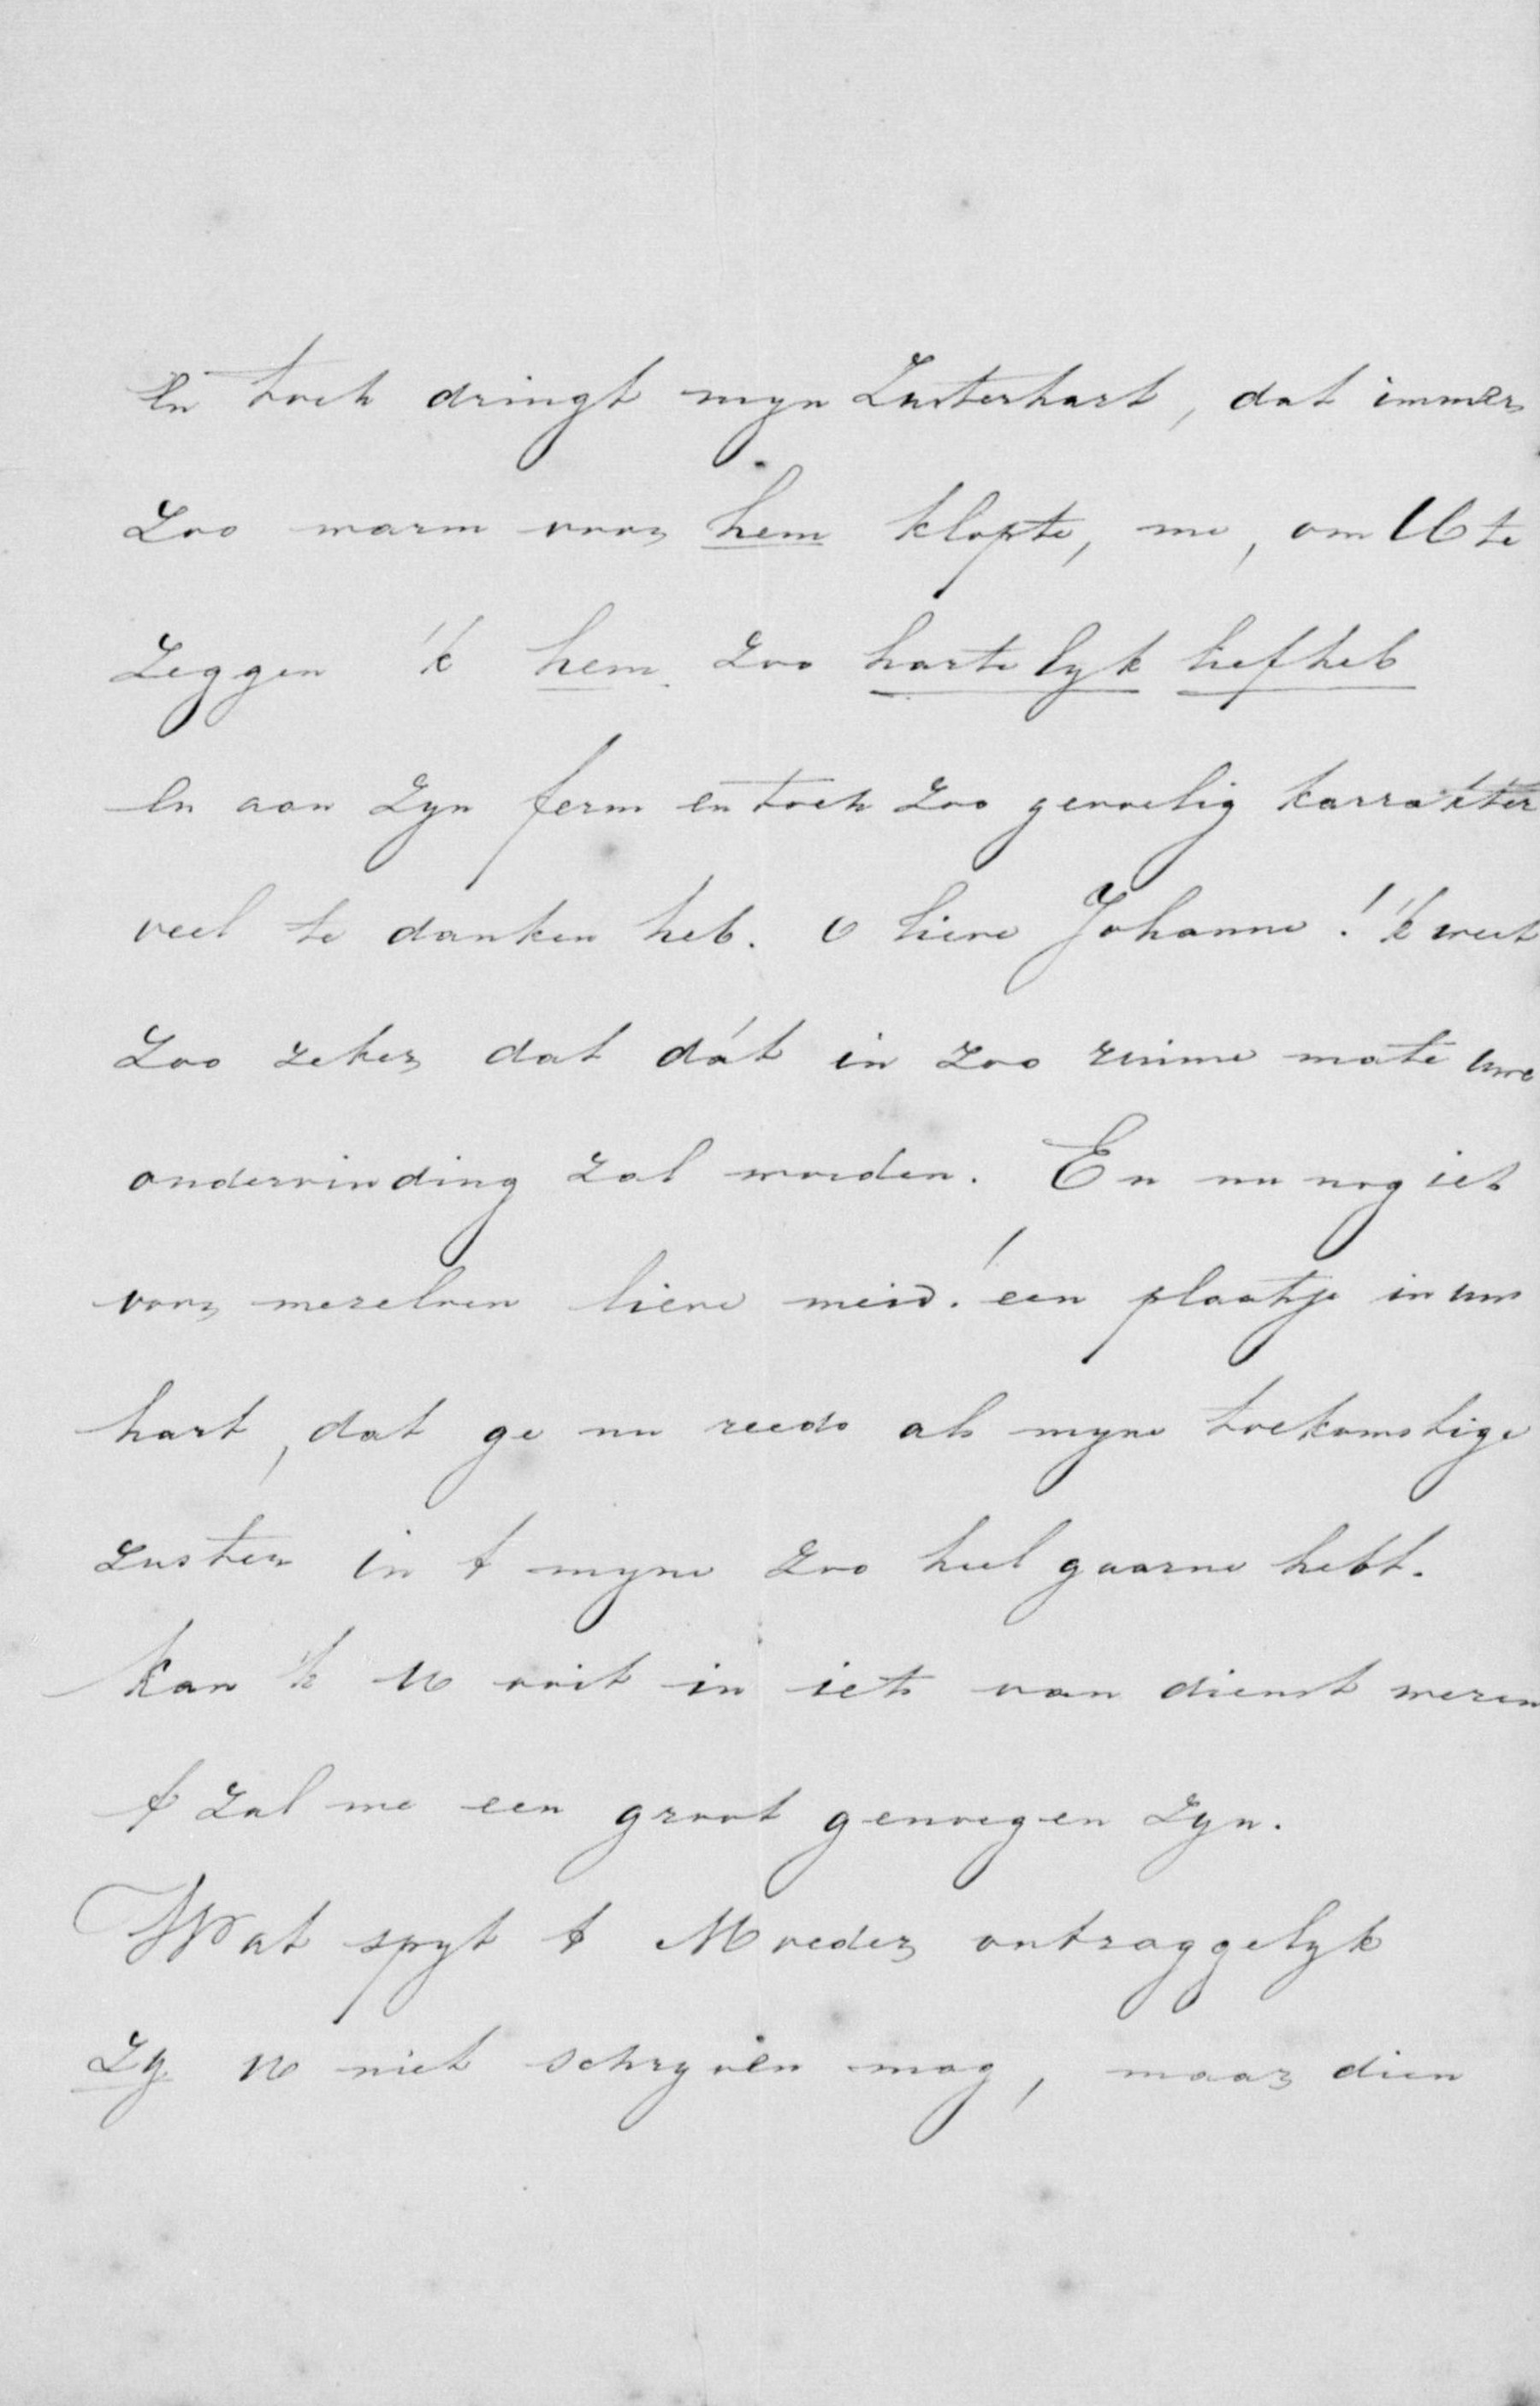 En toch dringt myn Zusterhart, dat immer
Zoo warm voor hem klopte, me, om U te
Zeggen 'k hem zoo hartelyk liefheb
En aan Zyn ferm en toch zoo gevoelig karrakter
veel te danken heb. O lieve Johanne! 'k weet
Zoo zeker dat dát in zoo ruime mate uwe
ondervinding zal worden. En nu nog iets
voor mezelven lieve meid! een plaatsje in uw
hart, dat ge nu reeds als myne toekomstige
zuster in 't myne zoo heel gaarne hebt.
Kan 'k U ooit in iets van dienst wezen
't Zal me een groot genoegen zyn.
Wat spyt 't Moeder ontzaggelyk
Zy U niet schryven mag, maar dien